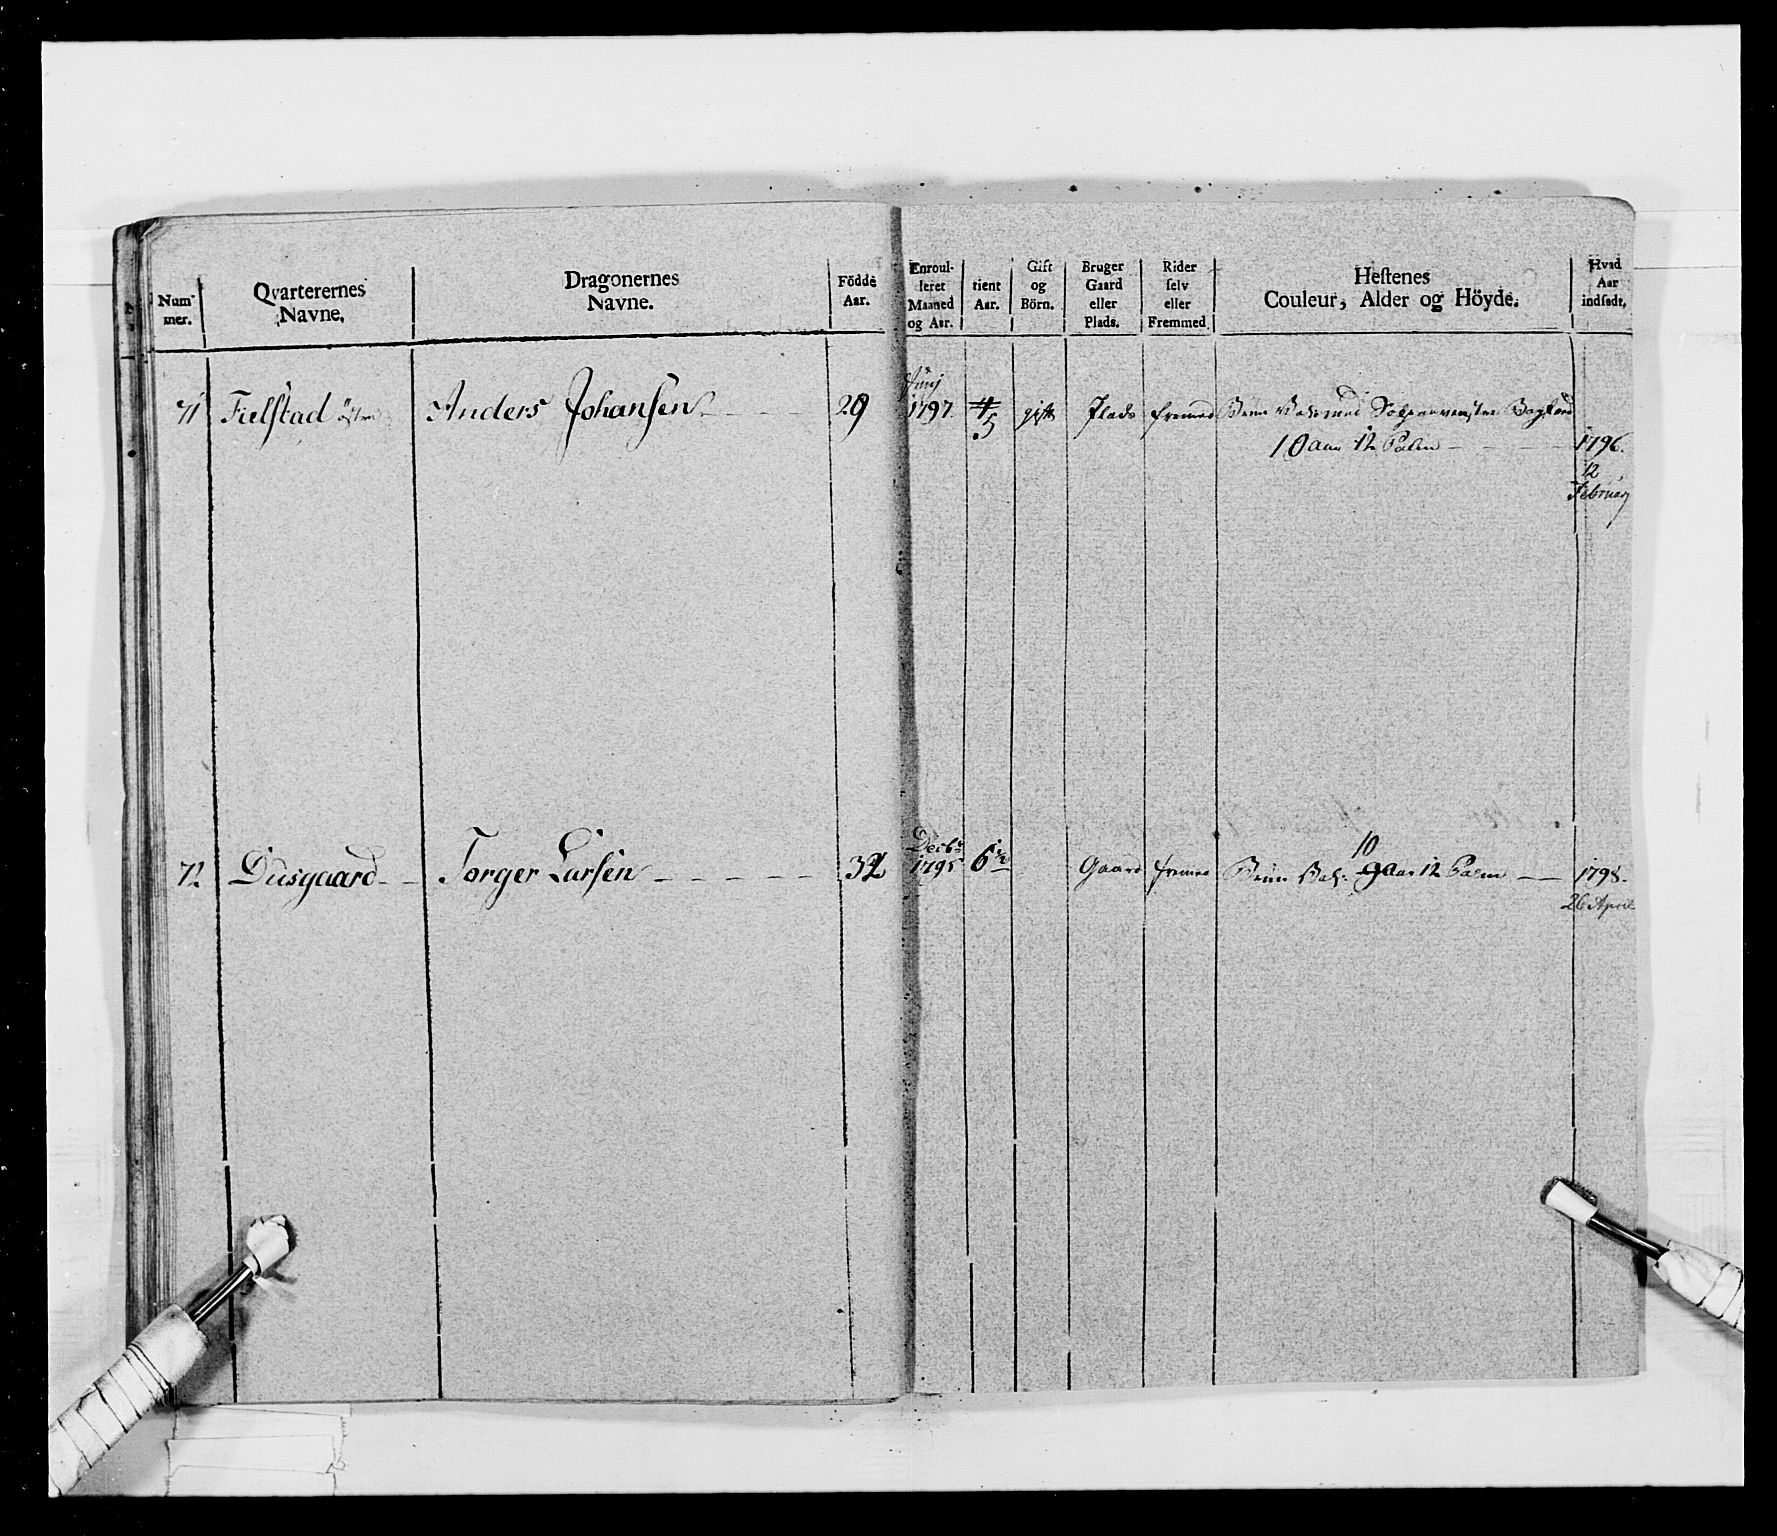 Num-
mer.
Qvarterernes
Navne.
Dragonernes
Navne.
Födde
Aar.
Enroul-
leret
Maaned
og Aar.
tient
Aar.
Gift
og
Börn.
Bruger
Gaard
eller
Plads.
Rider
selv
eller
Fremmed.
Hestenes
Couleur, Alder og Höyde.
Hvad
Aar
indsadt.
71 Fielstad östre Anders Johansen 29 Junj 1797 4 5 gift Plads fremed
10 aar 12 Palm 1796.
12
Februarj
72 Diisgaard Torger Larsen 32 Decbr 1795 6 1/2 Gaard fremed 10
9 aar 12 Palm 1798.
26 April